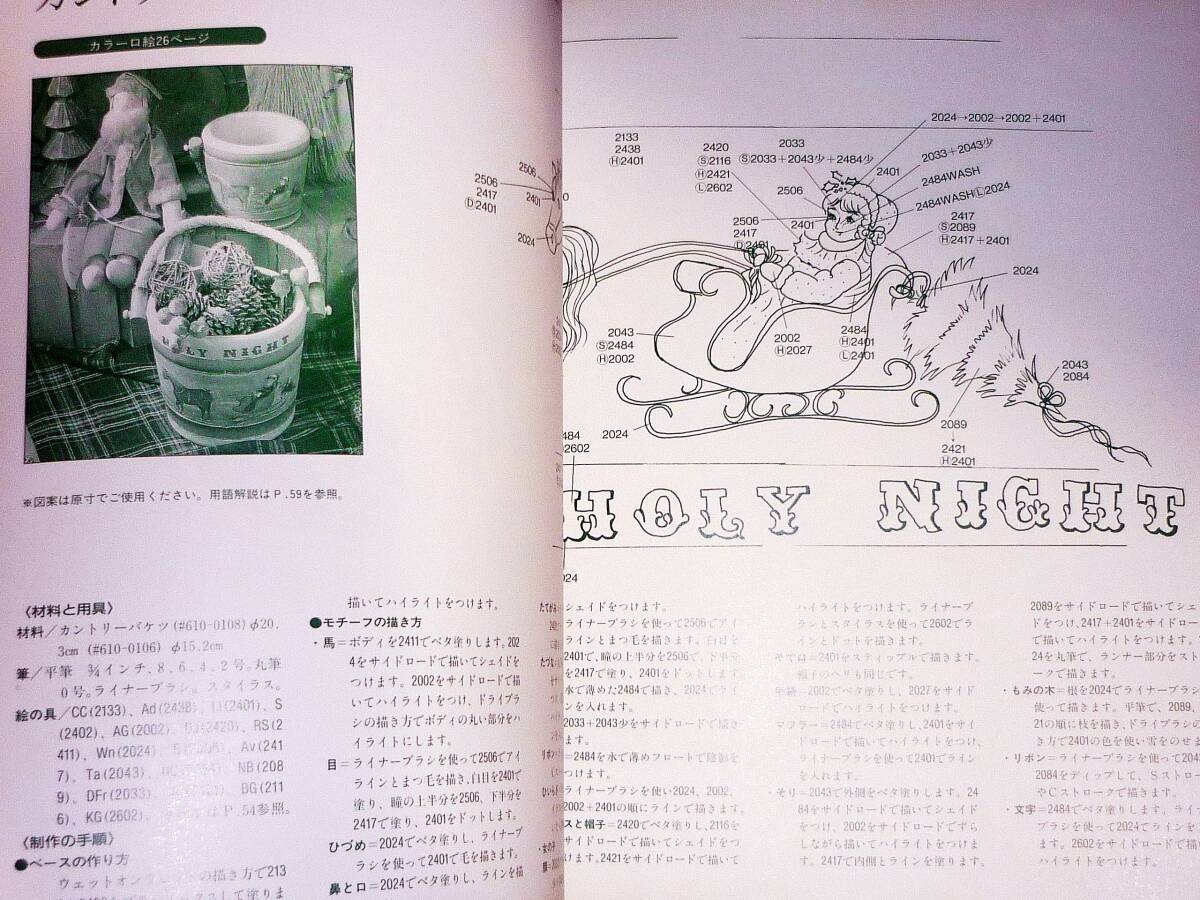 カラー口絵26ページ
HOLY NIGHT
※図案は原寸でご使用ください。用語解説はP.59を参照。
〈材料と用具〉
材料／カントリーバケツ(#610-0108)φ20.
3cm (#610-0106) φ15.2cm
筆／平筆 ¾インチ、8、6、4、2号。丸筆
0号。ライナーブラシ。スタイラス。
絵の具／CC(2133)、Ad(2438)、(2401)、S
(2402)、AG(2002)、(2420)、RS(2
411)、Wn(2024)、Av(241
7)、Ta(2043)、NB(208
9)、DFr(2033)、BG(211
6)、KG(2602)。P.54参照。
〈制作の手順〉
●ベースの作り方
の描き方で213
描いてハイライトをつけます。
●モチーフの描き方
・馬＝ボディを2411でベタ塗りします。202
4をサイドロードで描いてシェイドを
つけます。2002をサイドロードで描
いてハイライトをつけ、ドライブラ
シの描き方でボディの丸い部分をハ
イライトにします。
目＝ライナーブラシを使って2506でアイ
ラインとまつ毛を描き、白目を2401で
塗り、瞳の上半分を2506、下半分を
2417で塗り、2401をドットします。
ひづめ＝2024でベタ塗りし、ライナーブ
ラシを使って2401で毛を描きます。
鼻と口＝2024でベタ塗りし、ラインを描
2506
2417
Ⓓ2401
2506
2401
2024
2133
2438
Ⓗ2401
2420
Ⓢ2116
Ⓗ2421
Ⓛ2602
2033
Ⓢ2033＋2043少＋2484少
2024→2002→2002＋2401
2033＋2043少
2401
2484WASH
2484WASHⓁ2024
2506
2506
2417
Ⓓ2401
2401
2417
Ⓢ2089
Ⓗ2417＋2401
2024
2043
Ⓢ2484
Ⓗ2002
2002
Ⓗ2027
2484
Ⓗ2401
Ⓛ2401
2043
2084
2024
2089
↓
2421
Ⓗ2401
2484
2602
HOLY NIGHT
シェイドをつけます。
ライナーブラシを使って2506でアイ
ラインとまつ毛を描きます。白目を
2401で、瞳の上半分を2506で、下半分
を2417で塗り、2401をドットします。
水で薄めた2484で描き、2024でライ
ンを入れます。
2033＋2043少をサイドロードで描き
ます。
＝2484を水で薄めフロートで陰影を
つけます。
ライナーブラシを使い2024、2002、
2002＋2401の順にラインで描きます。
スと帽子＝2420でベタ塗りし、2116を
サイドロードで描いてシェイドをつ
けます。2421をサイドロードで描いて
ハイライトをつけます。ライナーブ
ラシとスタイラスを使って2602でラ
インとドットを描きます。
そで口＝2401をスティップルで描きます。
帽子のヘリも同じです。
＝2002でベタ塗りし、2027をサイド
ロードでハイライトをつけます。
マフラー＝2484でベタ塗りし、2401をサイ
ドロードで描いてハイライトをつけ、
ライナーブラシを使って2401でライン
を入れます。
・そり＝2043で外側をベタ塗りします。24
84をサイドロードで描いてシェイド
をつけ、2002をサイドロードでずら
しながら描いてハイライトをつけま
す。2417で内側とラインを塗ります。
2089をサイドロードで描いてシェ
ドをつけ、2417＋2401をサイドロー
で描いてハイライトをつけます。
24を丸筆で、ランナー部分をスト
クで描きます。
・もみの木＝根を2024でライナーブラシ
使って描きます。平筆で、2089、
21の順に枝を描き、ドライブラシの
き方で2401の色を使い雪をのせま
・リボン＝ライナーブラシを使って2043
2084をディップして、Sストロー
やCストロークで描きます。
・文字＝2484でベタ塗りします。ライ
ブラシを使って2024でラインを
ます。2602をサイドロードで描
ハイライトをつけます。